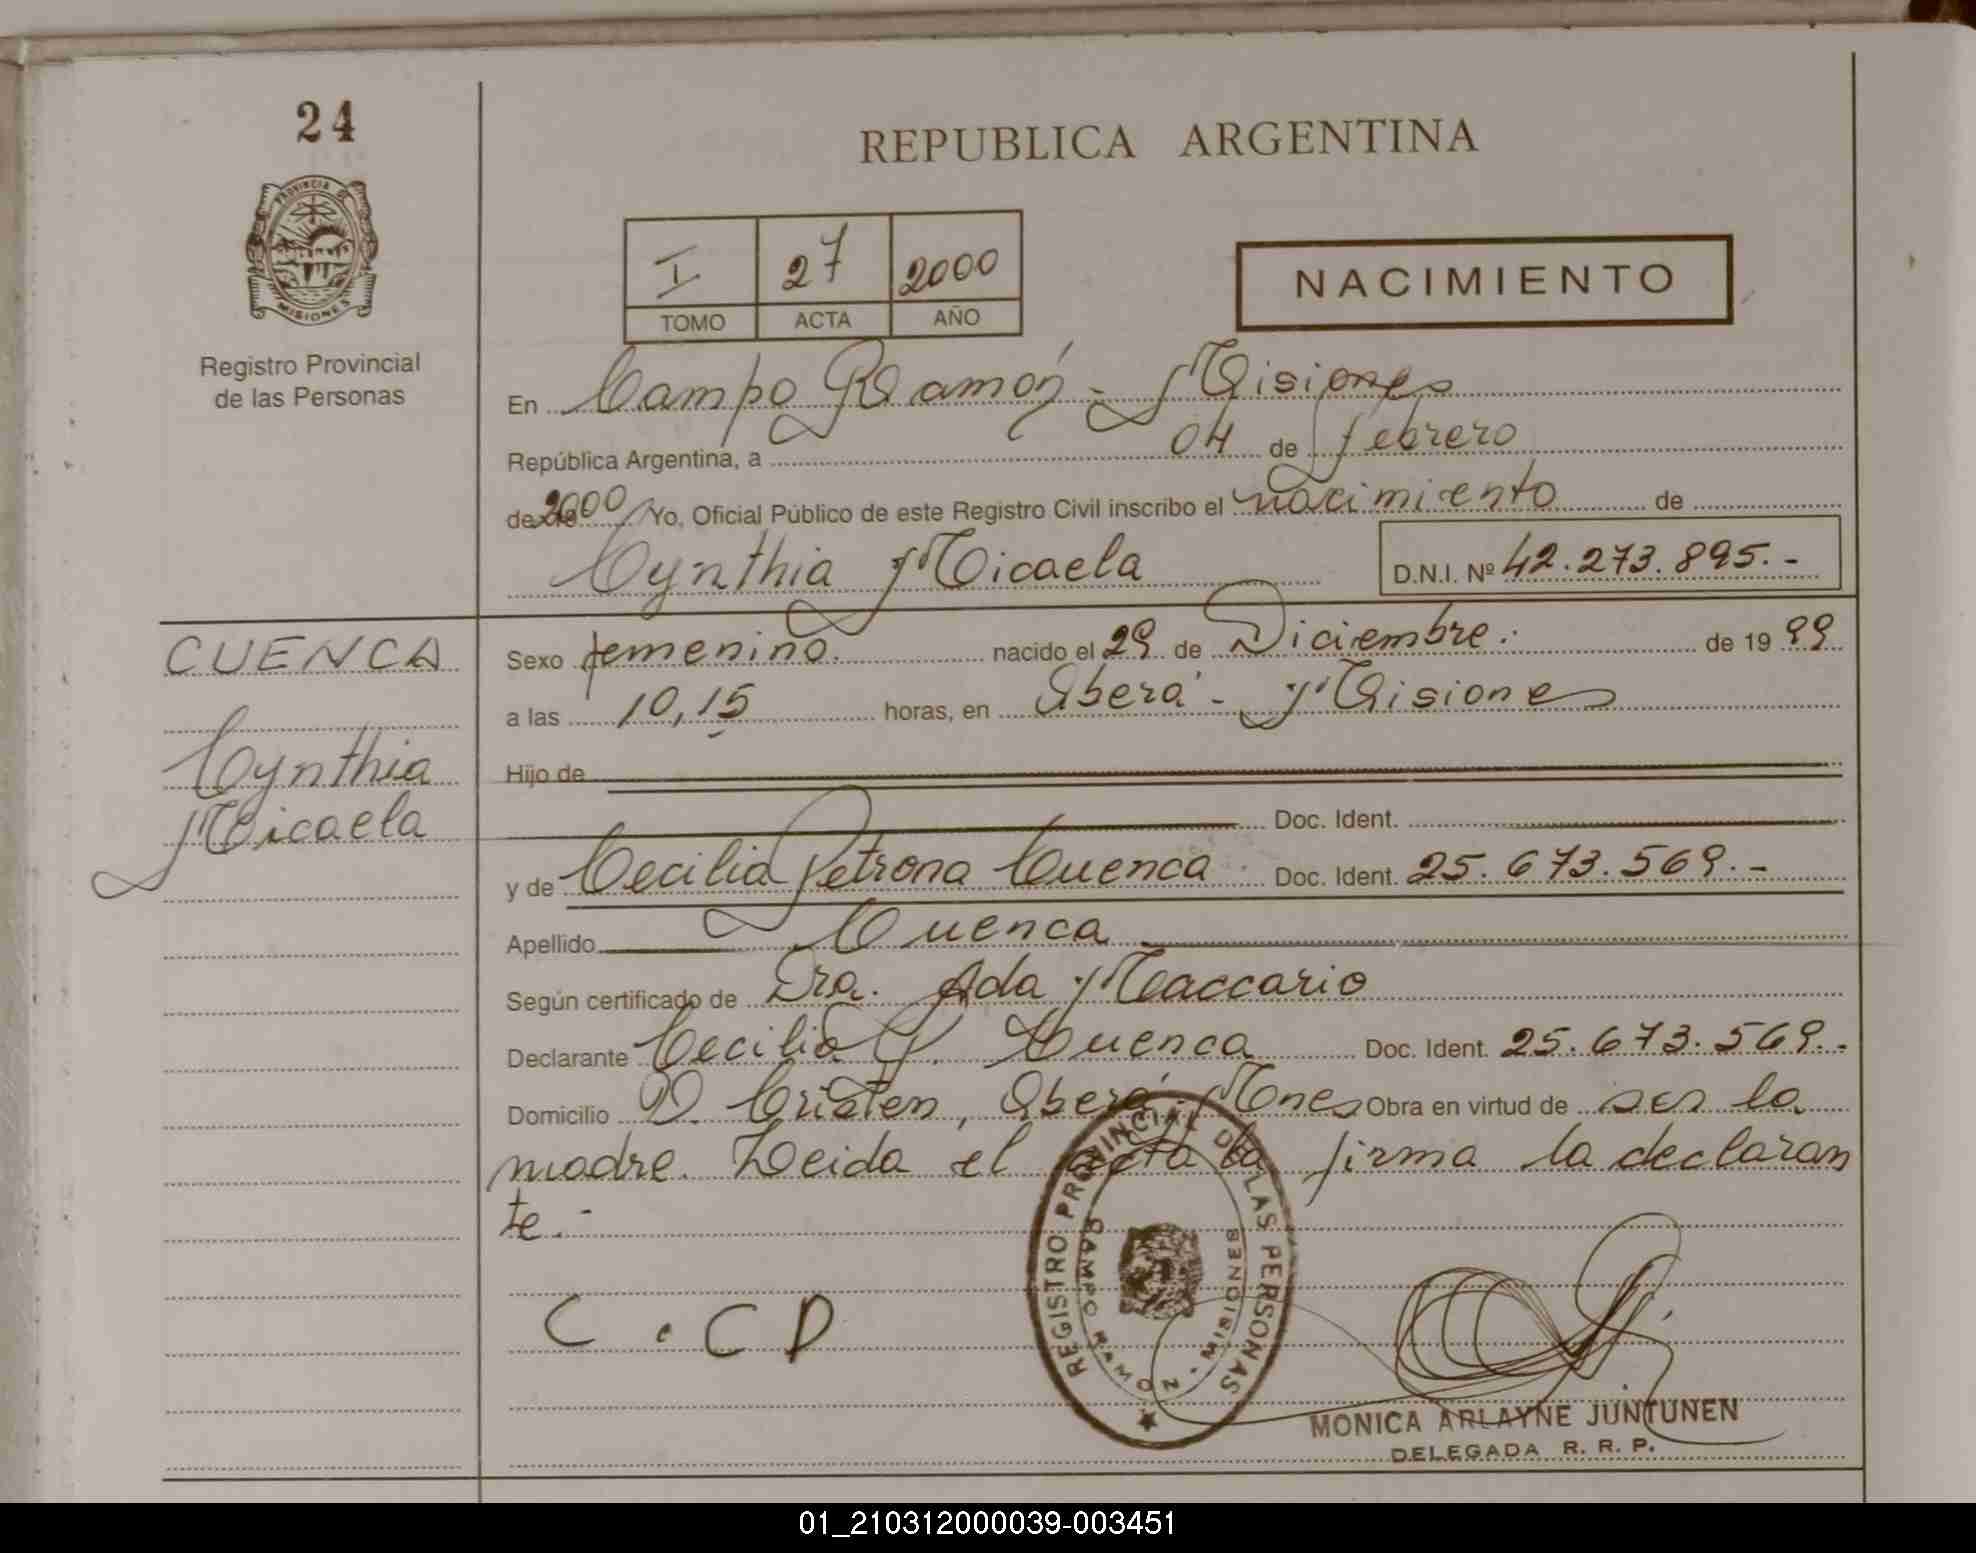 24
REPUBLICA ARGENTINA
PROVINCIA DE
MISIONES
Registro Provincial
de las Personas
I 27 2000
TOMO ACTA AÑO
NACIMIENTO
En Campo Ramón - Misiones
República Argentina, a 04 de febrero
de 2000 Yo, Oficial Público de este Registro Civil inscribo el nacimiento de
Cynthia Micaela D.N.I. Nº 42.273.895.-
CUENCA
Cynthia
Micaela
Sexo femenino. nacido el 29 de Diciembre. de 1999
a las 10,15 horas, en Oberá - Misiones
Hijo de
Doc. Ident.
y de Cecilia Petrona Cuenca Doc. Ident. 25.673.569.-
Apellido Cuenca
Según certificado de Dra. Ada Maccario
Declarante Cecilia P. Cuenca Doc. Ident. 25.673.569.-
Domicilio D. Cristen, Oberá - Mnes Obra en virtud de ser la
madre. Leida el acta la firma la declaran
te.-
C . C D
REGISTRO PROVINCIAL DE LAS PERSONAS
CAMPO RAMON - MISIONES
MONICA ARLAYNE JUNTUNEN
DELEGADA R. R. P.
01_210312000039-003451